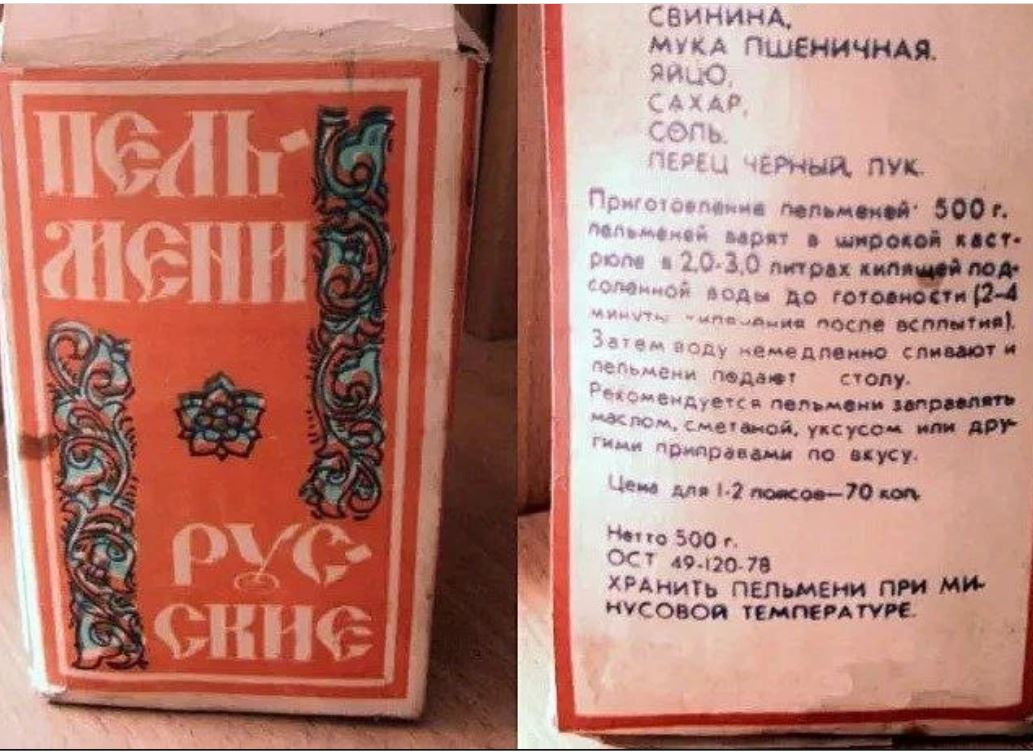 ПЕЛЬ-
МЕНИ
РУС-
СКИЕ
СВИНИНА,
МУКА ПШЕНИЧНАЯ.
ЯЙЦО,
САХАР,
СОЛЬ.
ПЕРЕЦ ЧЕРНЫЙ, ЛУК.
Приготовление пельменей: 500 г.
пельменей варят в широкой каст-
рюле в 2,0-3,0 литрах кипящей под-
соленной воды до готовности (2-4
минуты кипячения после всплытия).
Затем воду немедленно сливают и
пельмени подают столу.
Рекомендуется пельмени заправлять
маслом, сметаной, уксусом или дру-
гими приправами по вкусу.
Цена для 1-2 поясов—70 коп.
Нетто 500 г.
ОСТ 49-120-78
ХРАНИТЬ ПЕЛЬМЕНИ ПРИ МИ-
НУСОВОЙ ТЕМПЕРАТУРЕ.